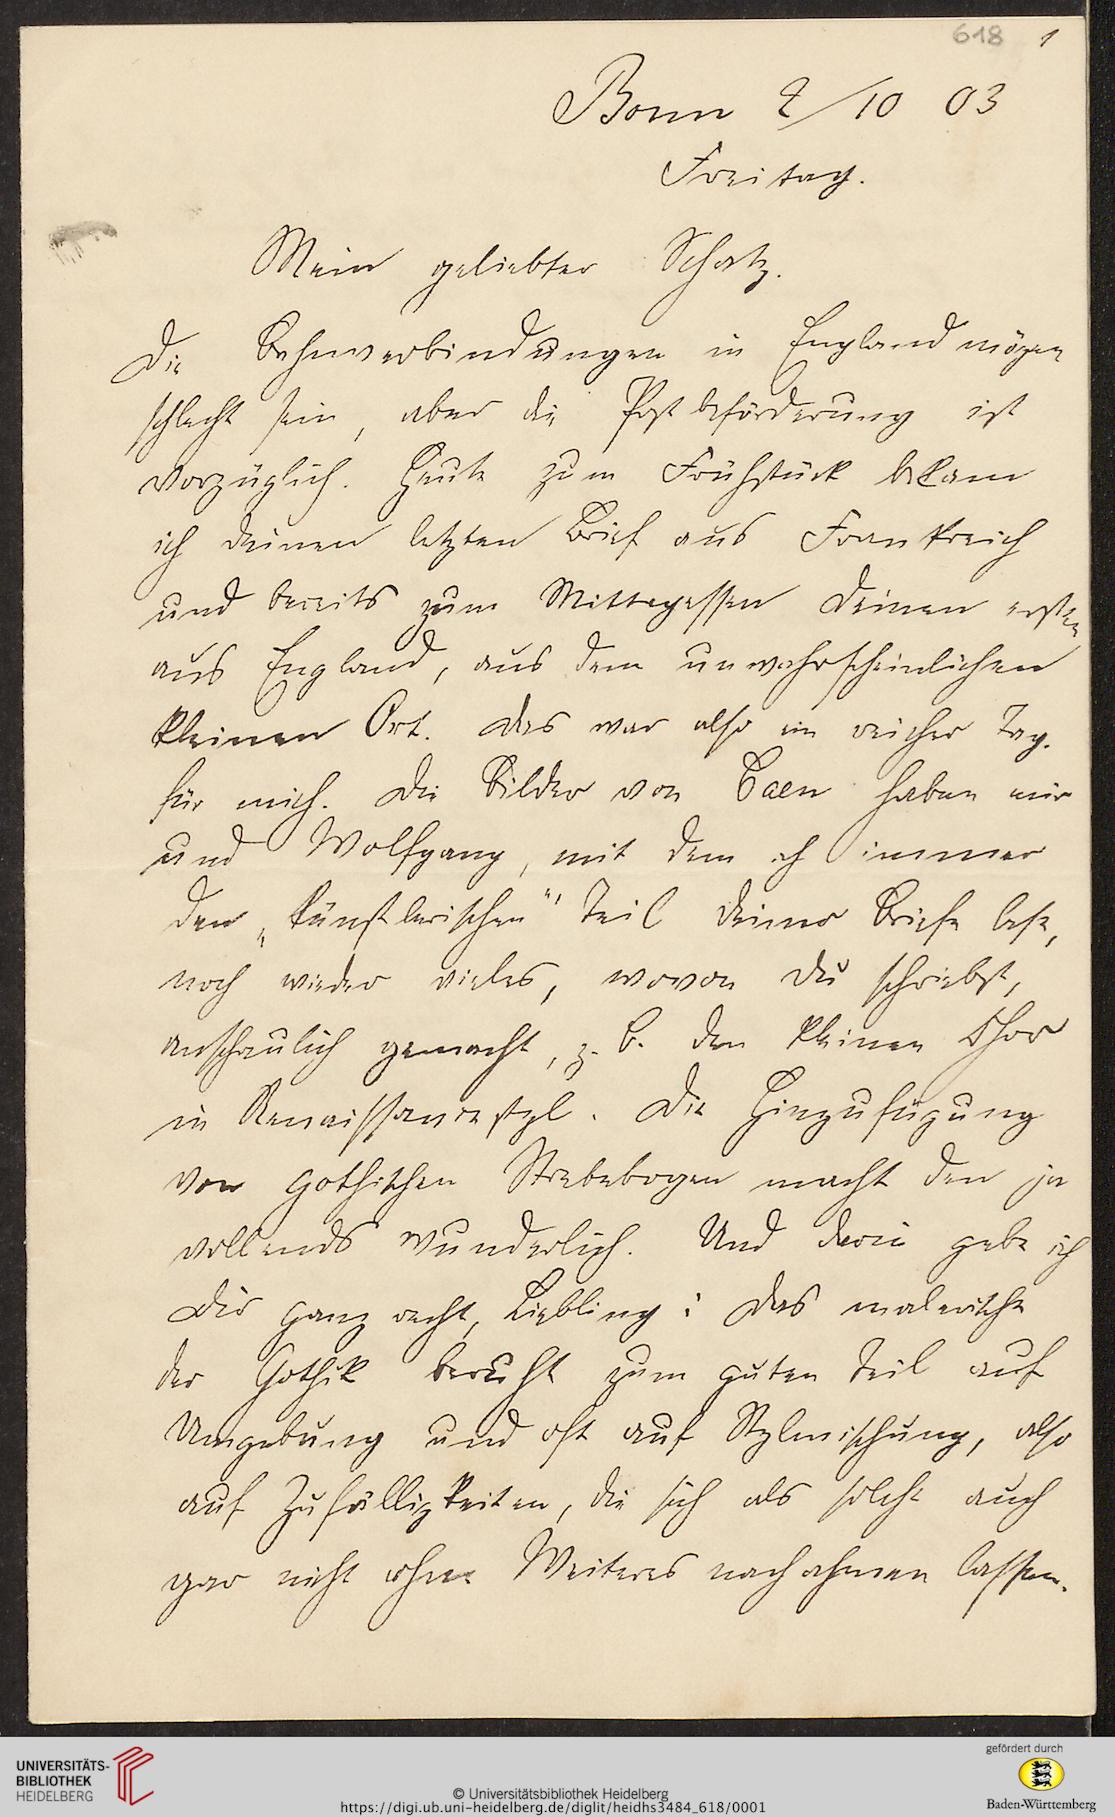 618 1
Bonn 2/10 03
Freitag.
Mein geliebter Schatz.
Die Bahnverbindungen in England mögen
schlecht sein, aber die Postbeförderung ist
vorzüglich. Heute zum Frühstück bekam
ich deinen letzten Brief aus Frankreich
und bereits zum Mittagessen deinen ersten
aus England, aus dem unwahrscheinlichen
kleinen Ort. Das war also ein reicher Tag
für mich. Die Bilder von Caen haben mir
und Wolfgang, mit dem ich immer
den „künstlerischen“ Teil deiner Briefe lese,
noch wieder vieles, wovon du schriebst,
anschaulich gemacht, z. B. den kleinen Chor
in Renaissancestyl. Die Hinzufügung
von gothischen Strebebogen macht den ja
vollends wunderlich. Und darin gebe ich
dir ganz recht, Liebling: das malerische
der Gothik beruht zum guten Teil auf
Umgebung und oft auf Stylmischung, also
auf Zufälligkeiten, die sich als solche auch
gar nicht ohne Weiteres nachahmen lassen.
UNIVERSITÄTS-
BIBLIOTHEK
HEIDELBERG
© Universitätsbibliothek Heidelberg
https://digi.ub.uni-heidelberg.de/diglit/heidhs3484_618/0001
gefördert durch
Baden-Württemberg